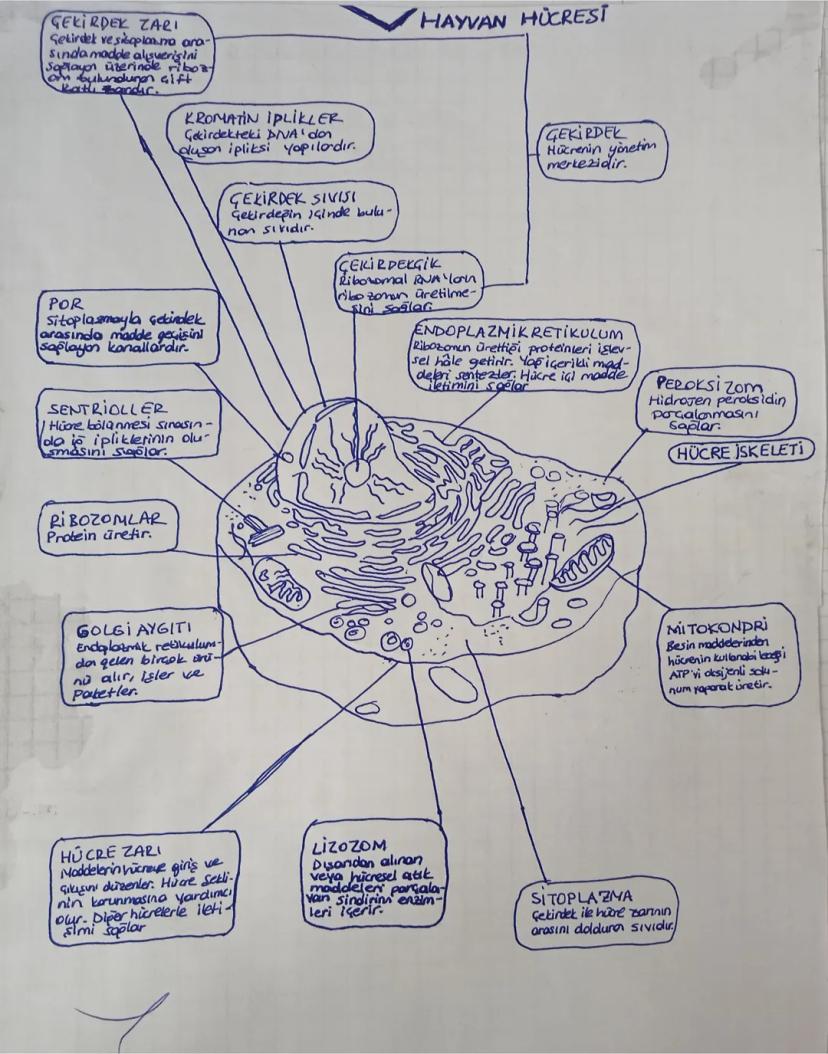 HAYVAN HÜCRESİ
ÇEKİRDEK ZARI
Çekirdek ve sitoplazma ara-
sında madde alışverişini
sağlayan üzerinde riboz-
om bulunduran çift
katlı zardır.
KROMATİN İPLİKLER
Çekirdekteki DNA'dan
oluşan ipliksi yapılardır.
ÇEKİRDEK
Hücrenin yönetim
merkezidir.
ÇEKİRDEK SIVISI
Çekirdeğin içinde bulu-
nan sıvıdır.
ÇEKİRDEKÇİK
Ribozomal RNA'ların
ribozomun üretilme-
sini sağlar.
POR
Sitoplazmayla çekirdek
arasında madde geçişini
sağlayan kanallardır.
ENDOPLAZMİK RETİKULUM
Ribozomun ürettiği proteinleri işlev-
sel hâle getirir. Yağ içerikli mad-
deleri sentezler. Hücre içi madde
iletimini sağlar
PEROKSİZOM
Hidrojen peroksidin
parçalanmasını
sağlar.
SENTRİOLLER
Hücre bölünmesi sırasın-
da iğ ipliklerinin olu-
şmasını sağlar.
HÜCRE İSKELETİ
RİBOZOMLAR
Protein üretir.
GOLGİ AYGITI
Endoplazmik retikulum-
dan gelen birçok ürü-
nü alır, işler ve
paketler.
MİTOKONDRİ
Besin maddelerinden
hücrenin kullanabileceği
ATP'yi oksijenli solu-
num yaparak üretir.
HÜCRE ZARI
Maddelerin hücreye giriş ve
çıkışını düzenler. Hücre şekli-
nin korunmasına yardımcı
olur. Diğer hücrelerle ileti-
şimi sağlar
LİZOZOM
Dışarıdan alınan
veya hücresel atık
maddeleri parçala-
yan sindirim enzim-
leri içerir.
SİTOPLAZMA
Çekirdek ile hücre zarının
arasını dolduran sıvıdır.